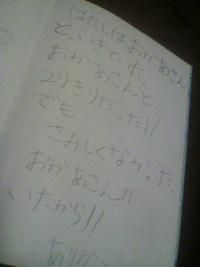 はたしはおかあさん
と、いきていた。
おかあさんと
2りきりだった!!
でも
さみしくなかった。
おかあさんが
いたから!!